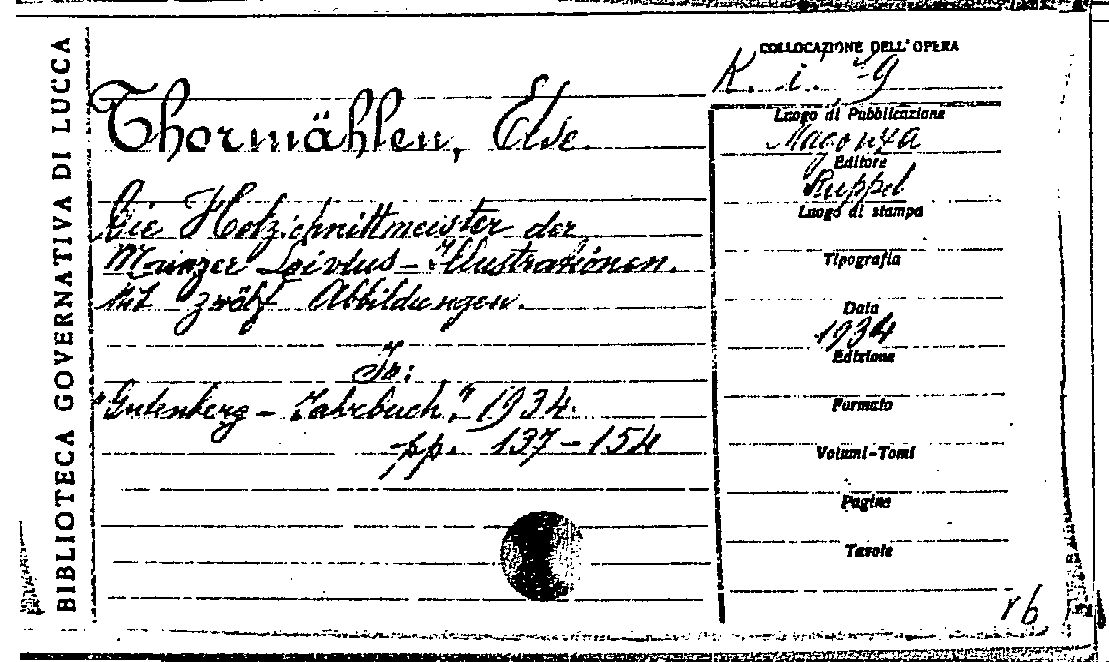 BIBLIOTECA GOVERNATIVA DI LUCCA
Thormählen, Else.
Die Holzschnittmeister der
Mainzer Livius-Illustrationen.
Mit zwölf Abbildungen.
In:
"Gutenberg-Jahrbuch", 1934.
pp. 137-154
COLLOCAZIONE DELL'OPERA
K. i. 9
Luogo di Pubblicazione
Magonza
Editore
Ruppel
Luogo di stampa
Tipografia
Data
1934
Edizione
Formato
Volumi-Tomi
Pagine
Tavole